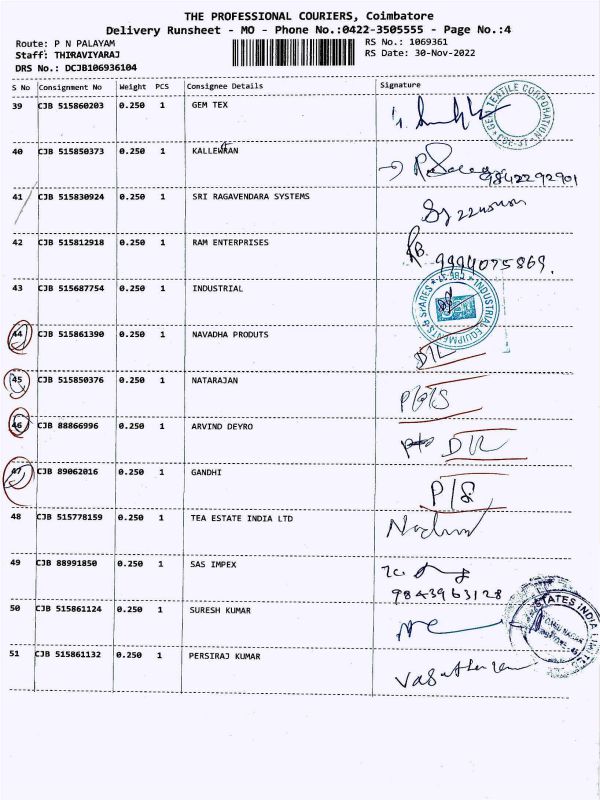 THE PROFESSIONAL COURIERS, Coimbatore
Delivery Runsheet - MO - Phone No.:0422-3505555 - Page No.:4
Route: P N PALAYAM
RS No.: 1069361
Staff: THIRAVIYARAJ
RS Date: 30-Nov-2022
DRS No.: DCJB106936104
S No Consignment No Weight PCS Consignee Details Signature
39 CJB 515860203 0.250 1 GEM TEX
GEN TEXTILE CORPORATION
40 CJB 515850373 0.250 1 KALLEWRAN
9842292901
41 CJB 515830924 0.250 1 SRI RAGAVENDARA SYSTEMS
42 CJB 515812918 0.250 1 RAM ENTERPRISES
9994075869.
43 CJB 515687754 0.250 1 INDUSTRIAL
INDUSTRIAL EQUIPMENTS & SPARES
44 CJB 515861390 0.250 1 NAVADHA PRODUTS
D/L
45 CJB 515850376 0.250 1 NATARAJAN
46 CJB 88866996 0.250 1 ARVIND DEYRO
47 CJB 89062016 0.250 1 GANDHI
48 CJB 515778159 0.250 1 TEA ESTATE INDIA LTD
49 CJB 88991850 0.250 1 SAS IMPEX
9843963128
50 CJB 515861124 0.250 1 SURESH KUMAR
STATES INDIA LIMITED
51 CJB 515861132 0.250 1 PERSIRAJ KUMAR